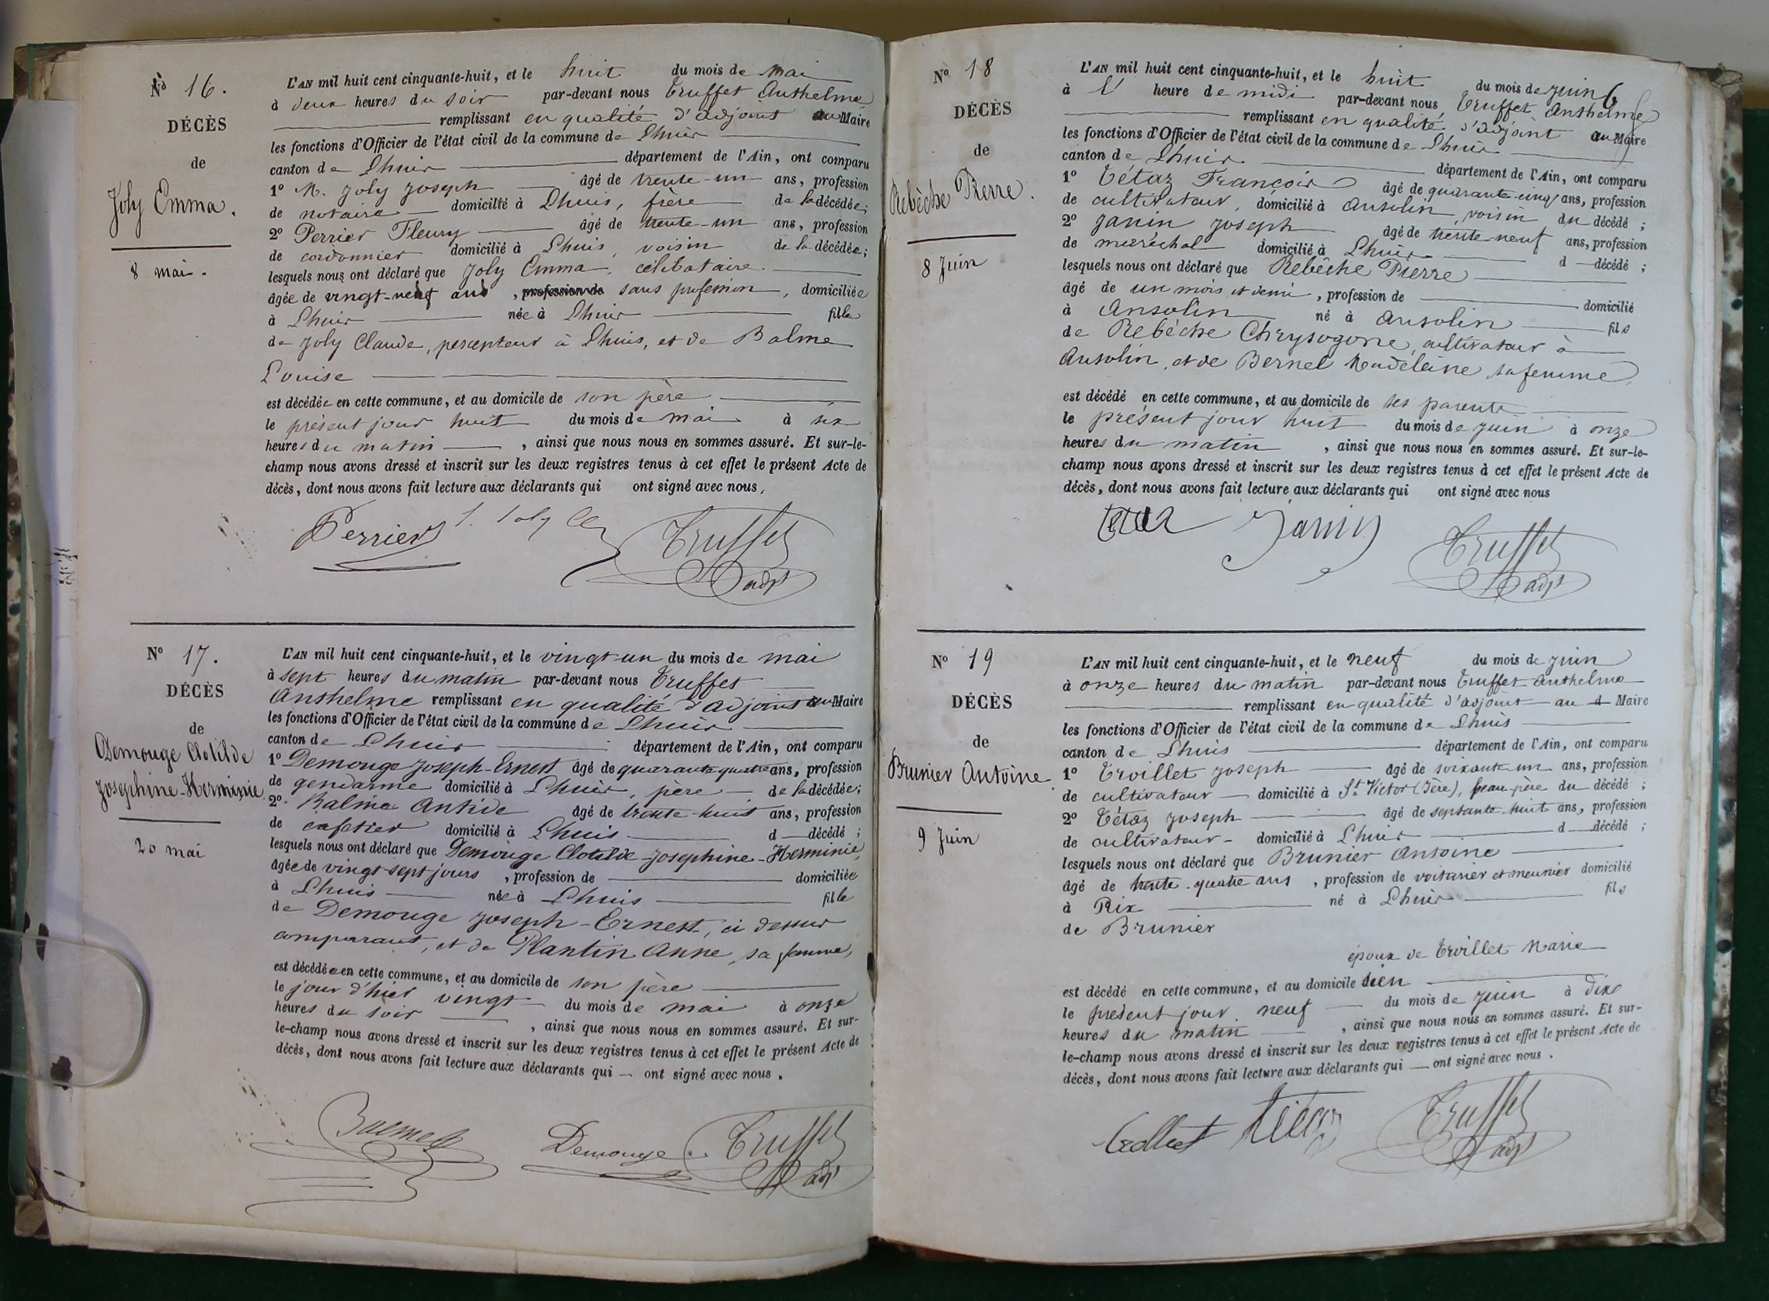 No 16.
DÉCÈS
de
Joly Emma.
8 mai.
L'AN mil huit cent cinquante-huit, et le huit du mois de mai
à deux heures du soir par-devant nous Truffet Anthelme
remplissant en qualité d'adjoint au Maire
les fonctions d'Officier de l'état civil de la commune de Lhuis
canton de Lhuis département de l'Ain, ont comparu
1° M. Joly Joseph âgé de trente-un ans, profession
de notaire domicilié à Lhuis, frère de la décédée;
2° Perrier Fleury âgé de trente-un ans, profession
de cordonnier domicilié à Lhuis, voisin de la décédée;
lesquels nous ont déclaré que Joly Emma, célibataire
âgée de vingt-neuf ans, profession de sans profession, domiciliée
à Lhuis née à Lhuis fille
de Joly Claude, percepteur à Lhuis, et de Balme
Louise
est décédée en cette commune, et au domicile de son père
le présent jour huit du mois de mai à six
heures du matin, ainsi que nous nous en sommes assuré. Et sur-le-
champ nous avons dressé et inscrit sur les deux registres tenus à cet effet le présent Acte de
décès, dont nous avons fait lecture aux déclarants qui ont signé avec nous,
Perrier J. Joly Truffet
adjt
No 17.
DÉCÈS
de
Demouge Clotilde
Josephine-Herminie
20 mai
L'AN mil huit cent cinquante-huit, et le vingt-un du mois de mai
à sept heures du matin par-devant nous Truffet
Anthelme remplissant en qualité d'adjoint au Maire
les fonctions d'Officier de l'état civil de la commune de Lhuis
canton de Lhuis département de l'Ain, ont comparu
1° Demouge Joseph-Ernest âgé de quarante quatre ans, profession
de gendarme domicilié à Lhuis, père de la décédée;
2° Balme Antide âgé de trente-huit ans, profession
de cafetier domicilié à Lhuis d décédé;
lesquels nous ont déclaré que Demouge Clotilde Josephine-Herminie,
âgée de vingt sept jours, profession de domiciliée
à Lhuis née à Lhuis fille
de Demouge Joseph-Ernest, ci dessus
comparant, et de Plantin Anne, sa femme,
est décédée en cette commune, et au domicile de son père
le jour d'hier vingt du mois de mai à onze
heures du soir, ainsi que nous nous en sommes assuré. Et sur-
le-champ nous avons dressé et inscrit sur les deux registres tenus à cet effet le présent Acte de
décès, dont nous avons fait lecture aux déclarants qui ont signé avec nous.
Balme Demouge Truffet
adjt
No 18
DÉCÈS
de
Rebèche Pierre.
8 Juin
L'AN mil huit cent cinquante-huit, et le huit du mois de juin
à l' heure de midi par-devant nous Truffet Anthelme
remplissant en qualité d'adjoint au Maire
les fonctions d'Officier de l'état civil de la commune de Lhuis
canton de Lhuis département de l'Ain, ont comparu
1° Tétaz François âgé de quarante-cinq ans, profession
de cultivateur, domicilié à Ansolin, voisin du décédé;
2° Janin Joseph âgé de trente neuf ans, profession
de maréchal domicilié à Lhuis d décédé;
lesquels nous ont déclaré que Rebèche Pierre
âgé de un mois et demi, profession de domicilié
à Ansolin né à Ansolin fils
de Rebèche Chrysogone, cultivateur à
Ansolin, et de Bernel Madeleine, sa femme,
est décédé en cette commune, et au domicile de ses parents
le présent jour huit du mois de juin à onze
heures du matin, ainsi que nous nous en sommes assuré. Et sur-le-
champ nous avons dressé et inscrit sur les deux registres tenus à cet effet le présent Acte de
décès, dont nous avons fait lecture aux déclarants qui ont signé avec nous
Janin Truffet
adjt
No 19
DÉCÈS
de
Brunier Antoine
9 Juin
L'AN mil huit cent cinquante-huit, et le neuf du mois de juin
à onze heures du matin par-devant nous Truffet Anthelme
remplissant en qualité d'adjoint au Maire
les fonctions d'Officier de l'état civil de la commune de Lhuis
canton de Lhuis département de l'Ain, ont comparu
1° Trvillet Joseph âgé de soixante-un ans, profession
de cultivateur domicilié à St Victor (Isère), beau-père du décédé;
2° Tétaz Joseph âgé de septante-huit ans, profession
de cultivateur domicilié à Lhuis d décédé;
lesquels nous ont déclaré que Brunier Antoine
âgé de trente-quatre ans, profession de voiturier et meunier domicilié
à Rix né à Lhuis fils
de Brunier
époux de Trvillet Marie
est décédé en cette commune, et au domicile sien
le présent jour neuf du mois de juin à dix
heures du matin, ainsi que nous nous en sommes assuré. Et sur-
le-champ nous avons dressé et inscrit sur les deux registres tenus à cet effet le présent Acte de
décès, dont nous avons fait lecture aux déclarants qui ont signé avec nous.
Truffet
adjt